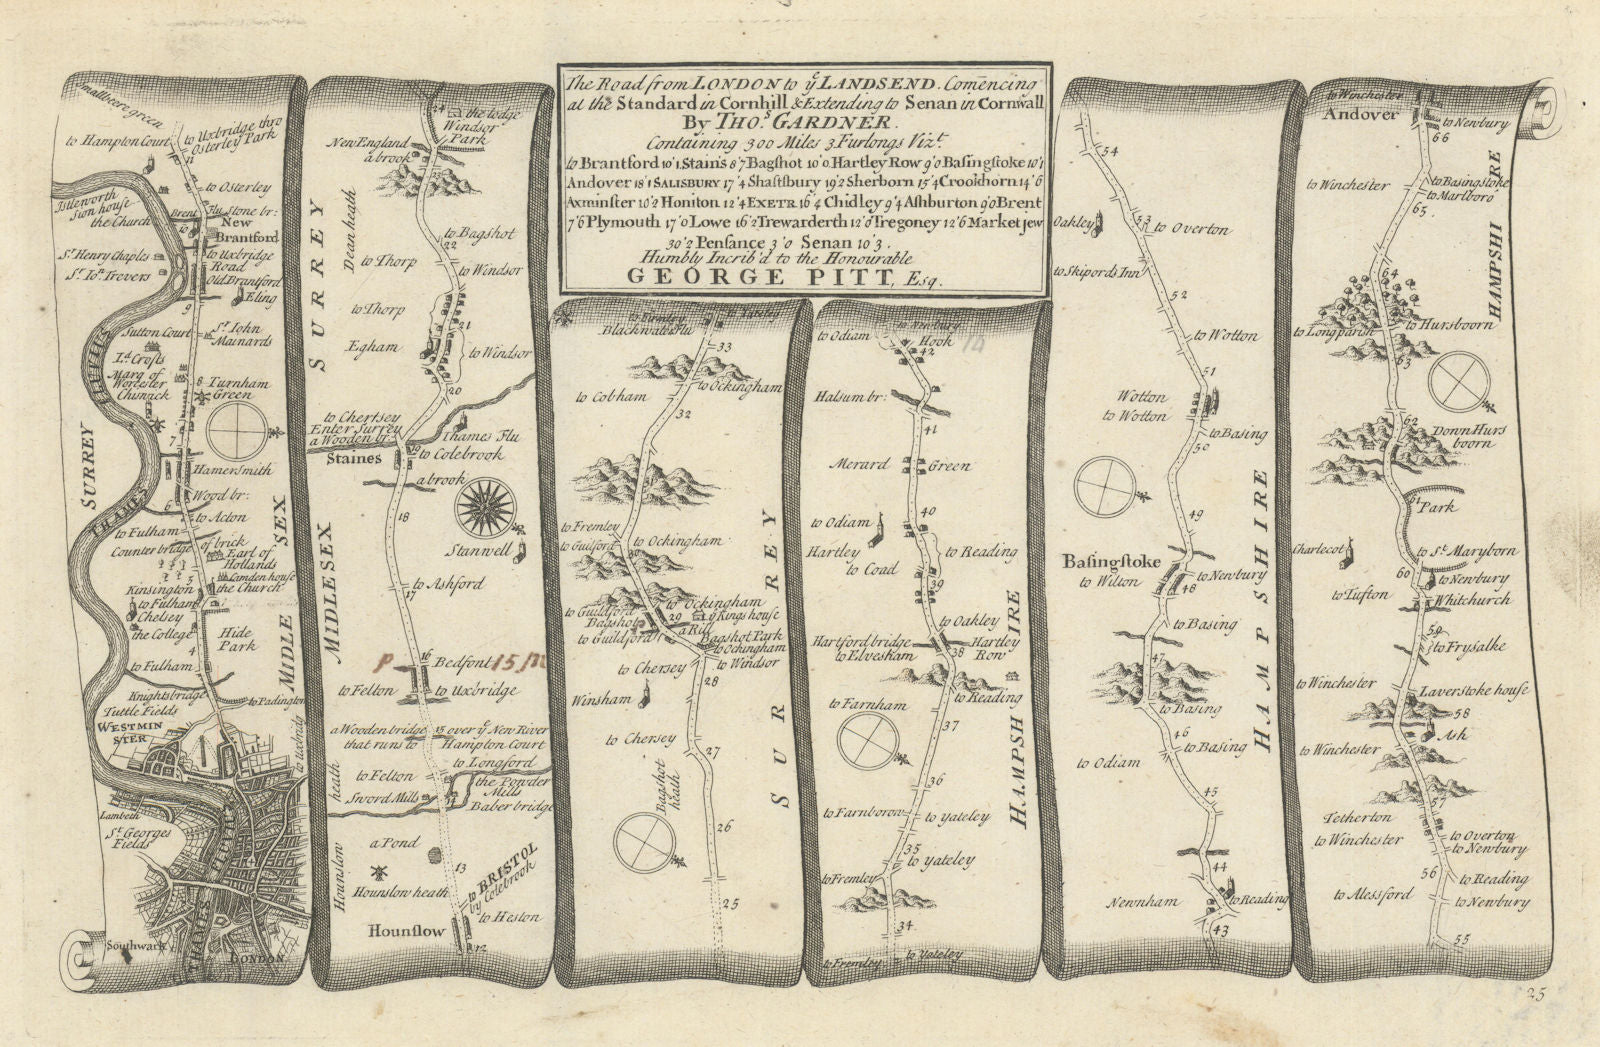 The Road from LONDON to yͤ LANDSEND. Comencing
at the Standard in Cornhill & Extending to Senan in Cornwall
By THOˢ. GARDNER.
Containing 300 Miles 3 Furlongs Vizᵗ.
to Brantford 10'1 Stains 8'7 Bagshot 10'0 Hartley Row 9'0 Basingstoke 10'1
Andover 18'1 SALISBURY 17'4 Shaftsbury 19'2 Sherborn 15'4 Crookhorn 14'6
Axminster 10'2 Honiton 12'4 EXETR 16'4 Chidley 9'4 Ashburton 9'0 Brent
7'6 Plymouth 17'0 Lowe 16'2 Trewarderth 12'0 Tregoney 12'6 Market jew
30'2 Pensance 3'0 Senan 10'3.
Humbly Incrib'd to the Honourable
GEORGE PITT, Esq.
Smallbeere green
to Hampton Court
to Uxbridge thro
Osterley Park
11
to Osterley
Istleworth
Sion house
the Church
Brent Flu
Stone br:
New
Brantford
10
Sᵗ. Henry Chaples
Sᵗ. Ioⁿ. Trevors
to Uxbridge
Road
Old Brantford
Eling
9
FLUVIUS
Sutton Court
Sᵗ. Iohn
Mainards
Lᵈ. Crofts
Marq of
Worcester
Chiswick
8
Turnham
Green
7
SURREY
Hamersmith
THAMES
6
Wood br:
to Acton
to Fulham
Counter bridge
of brick
Earl of
Hollands
5
Camden house
the Church
Kinsington
to Fulham
Chelsey
the College
Hide
Park
4
MIDLE SEX
to Fulham
Knightsbridge
to Padington
Tuttle Fields
WESTMIN
STER
to Uxbridg
Lambeth
Sᵗ. Georges
Fields
THAMES FLUVIUS
Southwark
LONDON
24
the lodge
Windsor
Park
New England
a brook
23
SURREY
Dean heath
to Bagshot
22
to Thorp
to Windsor
to Thorp
21
Egham
to Windsor
20
to Chertsey
Enter Surrey
a Wooden br:
Thames Flu
Staines
19
to Colebrook
a brook
18
Stanwell
MIDLESEX
to Ashford
17
P
16
Bedfont
15 m
to Felton
to Uxbridge
a Wooden bridge 15 over yͤ New River
that runs to Hampton Court
to Longford
heath
to Felton
the Powder
Mills
Sword Mills
14
Baber bridge
a Pond
Hounslow
13
to BRISTOL
by Colebrook
Hounslow heath
to Heston
Hounslow
12
to Fremley
to Yateley
Blackwater Flu
33
to Ockingham
to Cobham
32
to Fremley
to Guilford
to Ockingham
to Ockingham
to Guildford
Bagshot
29
yͤ Kings house
to Guildford
a Rill
Bagshot Park
to Ockingham
to Chersey
to Windsor
28
Winsham
to Chersey
27
SURREY
Bagshot
heath
26
25
to Odiam
to Newbury
Hook
42
Halsum br:
41
Merard Green
to Odiam
40
Hartley
to Reading
to Coad
39
to Oakley
Hartford bridge
to Elvesham
38
Hartley
Row
to Reading
to Farnham
37
HAMPSHIRE
36
to Farnborow
to yateley
35
to yateley
to Fremley
34
to Fremley
to Yateley
54
Oakley
53
to Overton
to Skipords Inn
52
to Wotton
51
Wotton
to Wotton
to Basing
50
49
Basingstoke
to Wilton
to Newbury
48
to Basing
HAMPSHIRE
47
to Basing
46
to Basing
to Odiam
45
44
Newnham
to Reading
43
to Winchester
Andover
to Newbury
66
to Winchester
to Basingstoke
to Marlboro
65
HAMPSHIRE
64
to Longparish
to Hursboorn
63
62
Down Hurs
boorn
61
Park
Charlecot
to Sᵗ. Maryborn
60
to Newbury
to Tufton
Whitchurch
59
to Frysalke
to Winchester
Laverstoke house
58
Ash
to Winchester
57
Tetherton
to Winchester
to Overton
to Newbury
56
to Reading
to Alessford
to Newbury
55
25